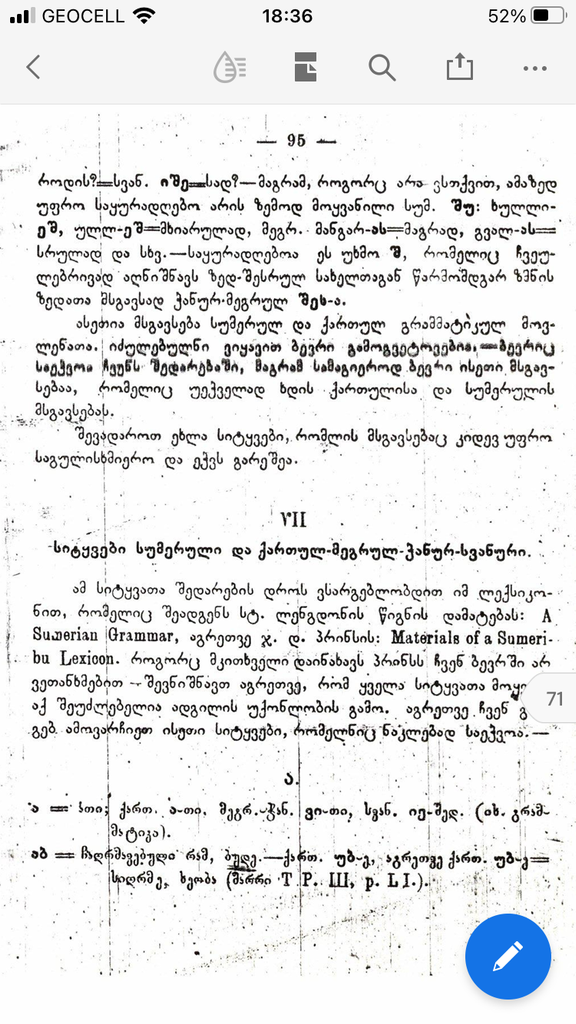 GEOCELL 18:36 52%
— 95 —
როდის?=სვან. იშე=სად?—მაგრამ, როგორც არა ვსთქვით, ამაზედ
უფრო საყურადღებო არის ზემოდ მოყვანილი სუმ. შუ: ხულლი-
ეშ, ულლ-ეშ=მხიარულად, მეგრ. მანგარ-ას=მაგრად, გვალ-ას=
სრულად და სხვ.—საყურადღებოა ეს უხმო შ, რომელიც ჩვეუ-
ლებრივად აღნიშნავს ზედ-შესრულ სახელთაგან წარმომდგარ ზმნის
ზედათა მსგავსად ჭანურ-მეგრულ შეს-ა.
ასეთია მსგავსება სუმერულ და ქართულ გრამმატიკულ მოვ-
ლენათა. იძულებულნი ვიყავით ბევრი გამოგვეტოვებია,—ბევრიც
საეჭვოა ჩვენს შედარებაში, მაგრამ სამაგიეროდ ბევრი ისეთი მსგავ-
სებაა, რომელიც უეჭველად ხდის ქართულისა და სუმერულის
მსგავსებას.
შევადაროთ ეხლა სიტყვები, რომლის მსგავსებაც კიდევ უფრო
საგულისხმიერო და ეჭვს გარეშეა.
VII
სიტყვები სუმერული და ქართულ-მეგრულ-ჭანურ-სვანური.
ამ სიტყვათა შედარების დროს ვსარგებლობდით იმ ლექსიკო-
ნით, რომელიც შეადგენს სტ. ლენგდონის წიგნის დამატებას: A
Sumerian Grammar, აგრეთვე ჯ. დ. პრინსის: Materials of a Sumeri-
bu Lexicon. როგორც მკითხველი დაინახავს პრინსს ჩვენ ბევრში არ
ვეთანხმებით—შევნიშნავთ აგრეთვე, რომ ყველა სიტყვათა
აქ შეუძლებელია ადგილის უქონლობის გამო. აგრეთვე ჩვენ
გებ ამოვარჩიეთ ისეთი სიტყვები, რომელნიც ნაკლებად საეჭვოა.—
71
ა.
ა = ათი; ქართ. ა-თი, მეგრ.-ჭან. ვი-თი, სვან. იე-შედ. (იხ. გრამ-
მატიკა).
აბ = ჩაღრმავებული რამ, ბუდე.—ქართ. უბ-ე, აგრეთვე ქართ. უბ-ე=
სიღრმე, ხეობა (მარრი T P. III, p. LI.).